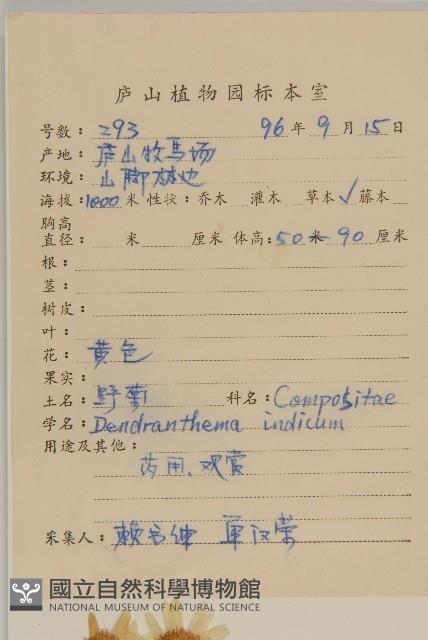 庐山植物园标本室
号数：293 96年9月15日
产地：庐山牧马场
环境：山脚林地
海拔：1000米 性状：乔木 灌木 草本✓藤本
胸高
直径： 米 厘米 体高：50米90厘米
根：
茎：
树皮：
叶：
花：黄色
果实：
土名：野菊 科名：Compositae
学名：Dendranthema indicum
用途及其他：
药用、观赏
采集人：赖书绅 单汉荣
國立自然科學博物館
NATIONAL MUSEUM OF NATURAL SCIENCE